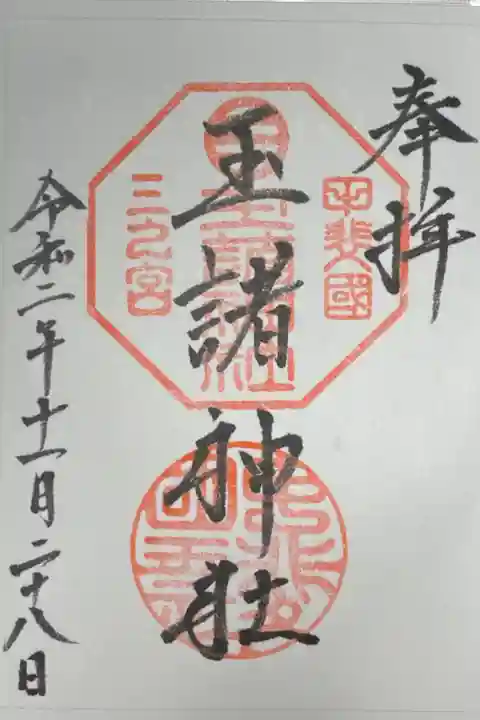 奉拝
甲斐國
玉諸神社
三ノ宮
令和二年十一月二十八日